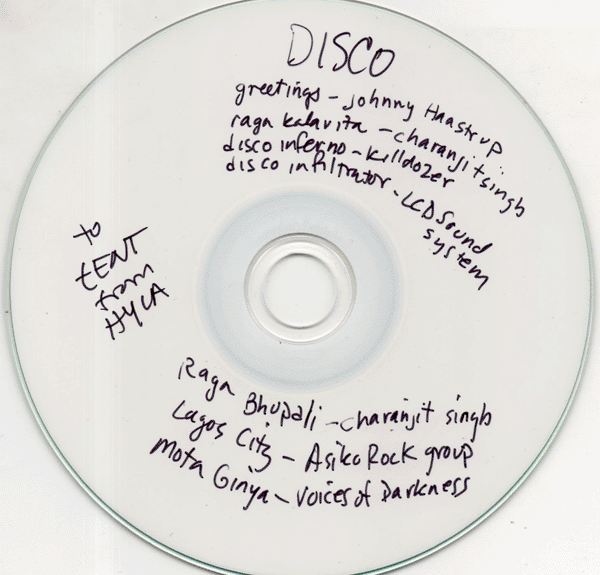 DISCO
greetings - Johnny Haastrup
raga kalavita - charanjit singh
disco inferno - killdozer
disco infiltrator - LCD Sound
system
to
tENT
from
HYLA
Raga Bhupali - charanjit singh
Lagos City - Asiko Rock group
Mota Ginya - Voices of Darkness